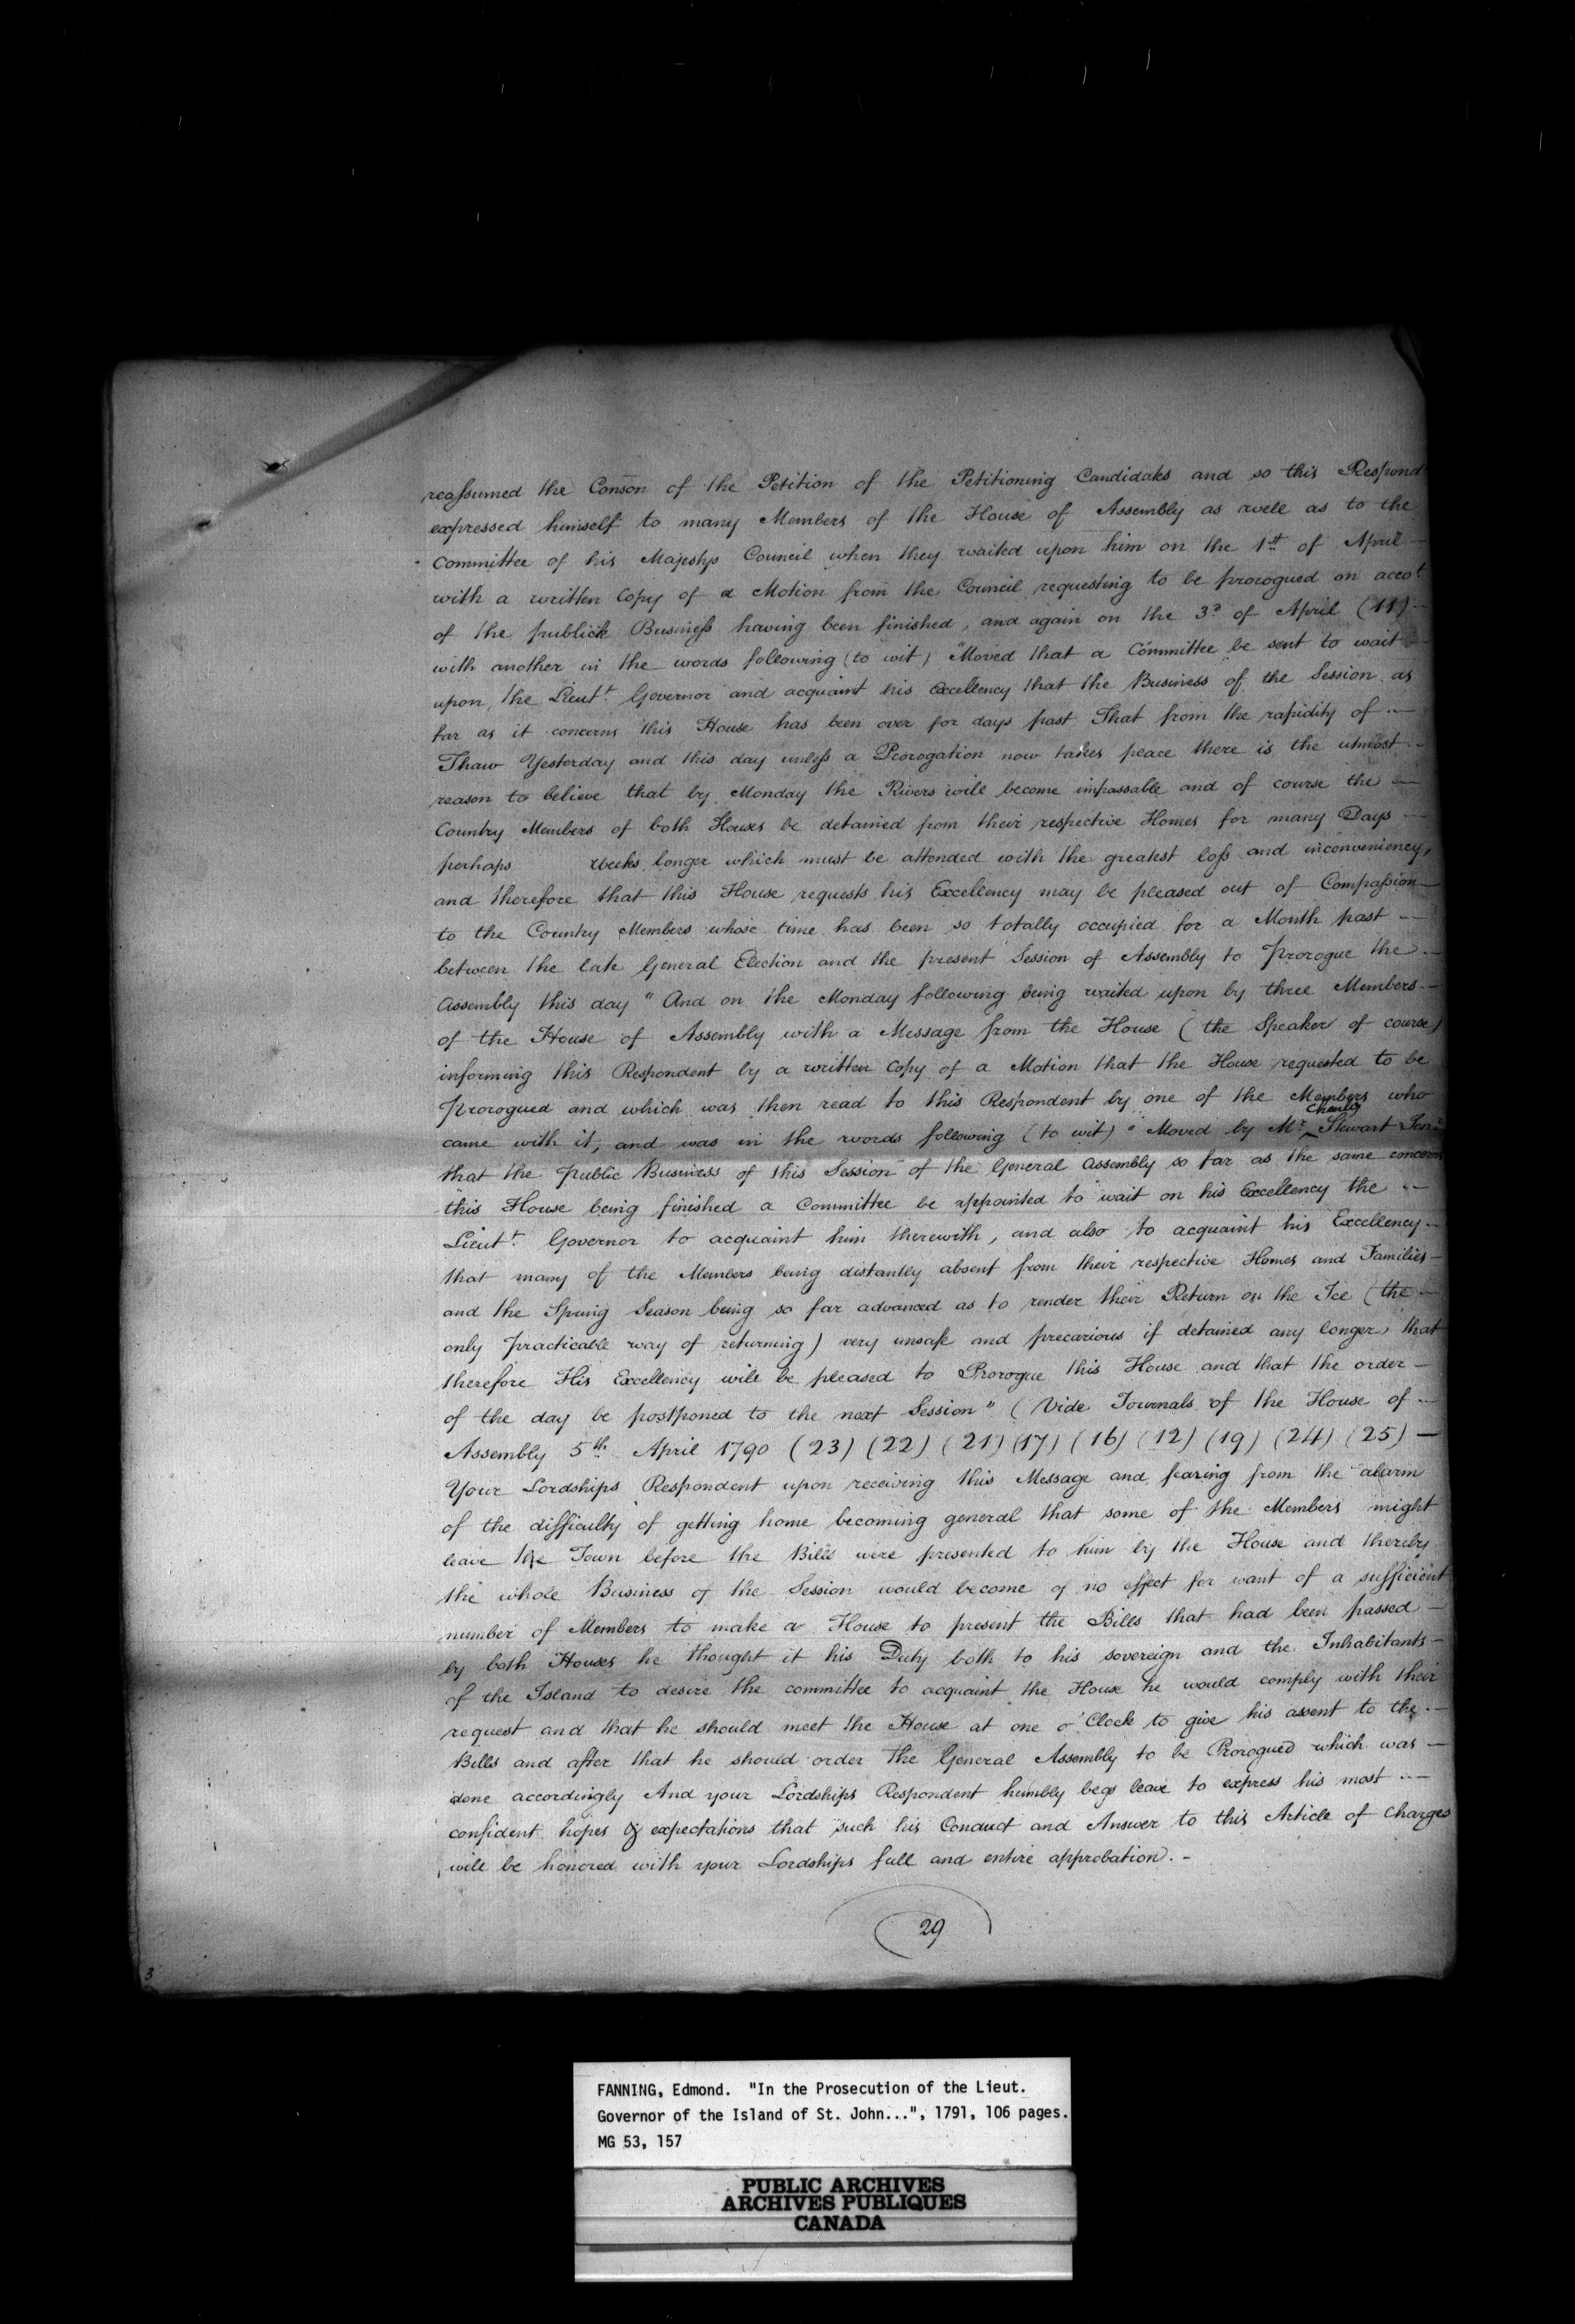 reassumed the Conson of the Petition of the Petitioning Candidates and so this Respond
expressed himself to many Members of the House of Assembly as well as to the
Committee of his Majestys Council when they waited upon him on the 1st of April
with a written Copy of a Motion from the Council requesting to be prorogued on accot
of the publick Business having been finished, and again on the 3d of April (11)
with another in the words following (to wit) "Moved that a Committee be sent to wait
upon the Lieut. Governor and acquaint his Excellency that the Business of the Session as
far as it concerns this House has been over for days past That from the rapidity of
Thaw Yesterday and this day unless a Prorogation now takes peace there is the utmost
reason to believe that by Monday the Rivers will become impassable and of course the
Country Members of both Houses be detained from their respective Homes for many Days
perhaps weeks longer which must be attended with the greatest loss and inconveniency,
and therefore that this House requests his Excellency may be pleased out of Compassion
to the Country Members whose time has been so totally occupied for a Month past
between the late General Election and the present Session of Assembly to Prorogue the
Assembly this day" And on the Monday following being waited upon by three Members
of the House of Assembly with a Message from the House (the Speaker of course)
informing this Respondent by a written Copy of a Motion that the House requested to be
Prorogued and which was then read to this Respondent by one of the Members who
came with it, and was in the words following (to wit) "Moved by Mr. Charles Stewart
that the Public Business of this Session of the General Assembly so far as the same concerns
this House being finished a Committee be appointed to wait on his Excellency the
Lieut. Governor to acquaint him therewith, and also to acquaint his Excellency
that many of the Members being distantly absent from their respective Homes and Families
and the Spring Season being so far advanced as to render their Return on the Ice (the
only Practicable way of returning) very unsafe and precarious if detained any longer, that
therefore His Excellency will be pleased to Prorogue this House and that the order
of the day be postponed to the next Session" (Vide Journals of the House of
Assembly 5th April 1790 (23) (22) (21) (17) (16) (12) (19) (24) (25) —
Your Lordships Respondent upon receiving this Message and fearing from the alarm
of the difficulty of getting home becoming general that some of the Members might
leave the Town before the Bills were presented to him by the House and thereby
the whole Business of the Session would become of no effect for want of a sufficient
number of Members to make a House to present the Bills that had been passed
by both Houses he thought it his Duty both to his sovereign and the Inhabitants
of the Island to desire the committee to acquaint the House he would comply with their
request and that he should meet the House at one o'Clock to give his assent to the
Bills and after that he should order the General Assembly to be Prorogued which was
done accordingly And your Lordships Respondent humbly begs leave to express his most
confident hopes & expectations that such his Conduct and Answer to this Article of Charges
will be honored with your Lordships full and entire approbation. -
29
3
FANNING, Edmond. "In the Prosecution of the Lieut.
Governor of the Island of St. John...", 1791, 106 pages.
MG 53, 157
PUBLIC ARCHIVES
ARCHIVES PUBLIQUES
CANADA